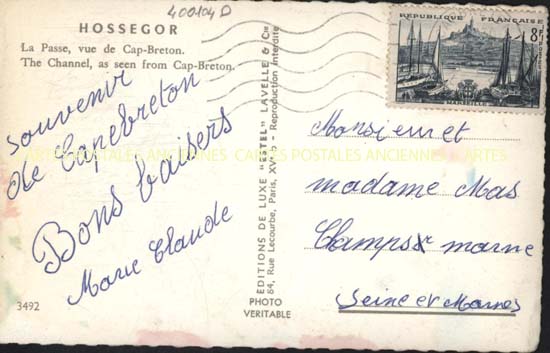 400104 D
HOSSEGOR
La Passe, vue de Cap-Breton.
The Channel, as seen from Cap-Breton.
souvenir
de Capebreton
Bons baisers
Marie Claude
3492
EDITIONS DE LUXE "ESTEL" LAVELLE & Cie
84, Rue Lecourbe, Paris, XVe - Reproduction interdite
PHOTO
VERITABLE
REPUBLIQUE FRANÇAISE
8F
MARSEILLE
Monsieur et
madame Mas
Champs marne
Seine et Marnes
CARTES POSTALES ANCIENNES CARTES POSTALES ANCIENNES CARTES